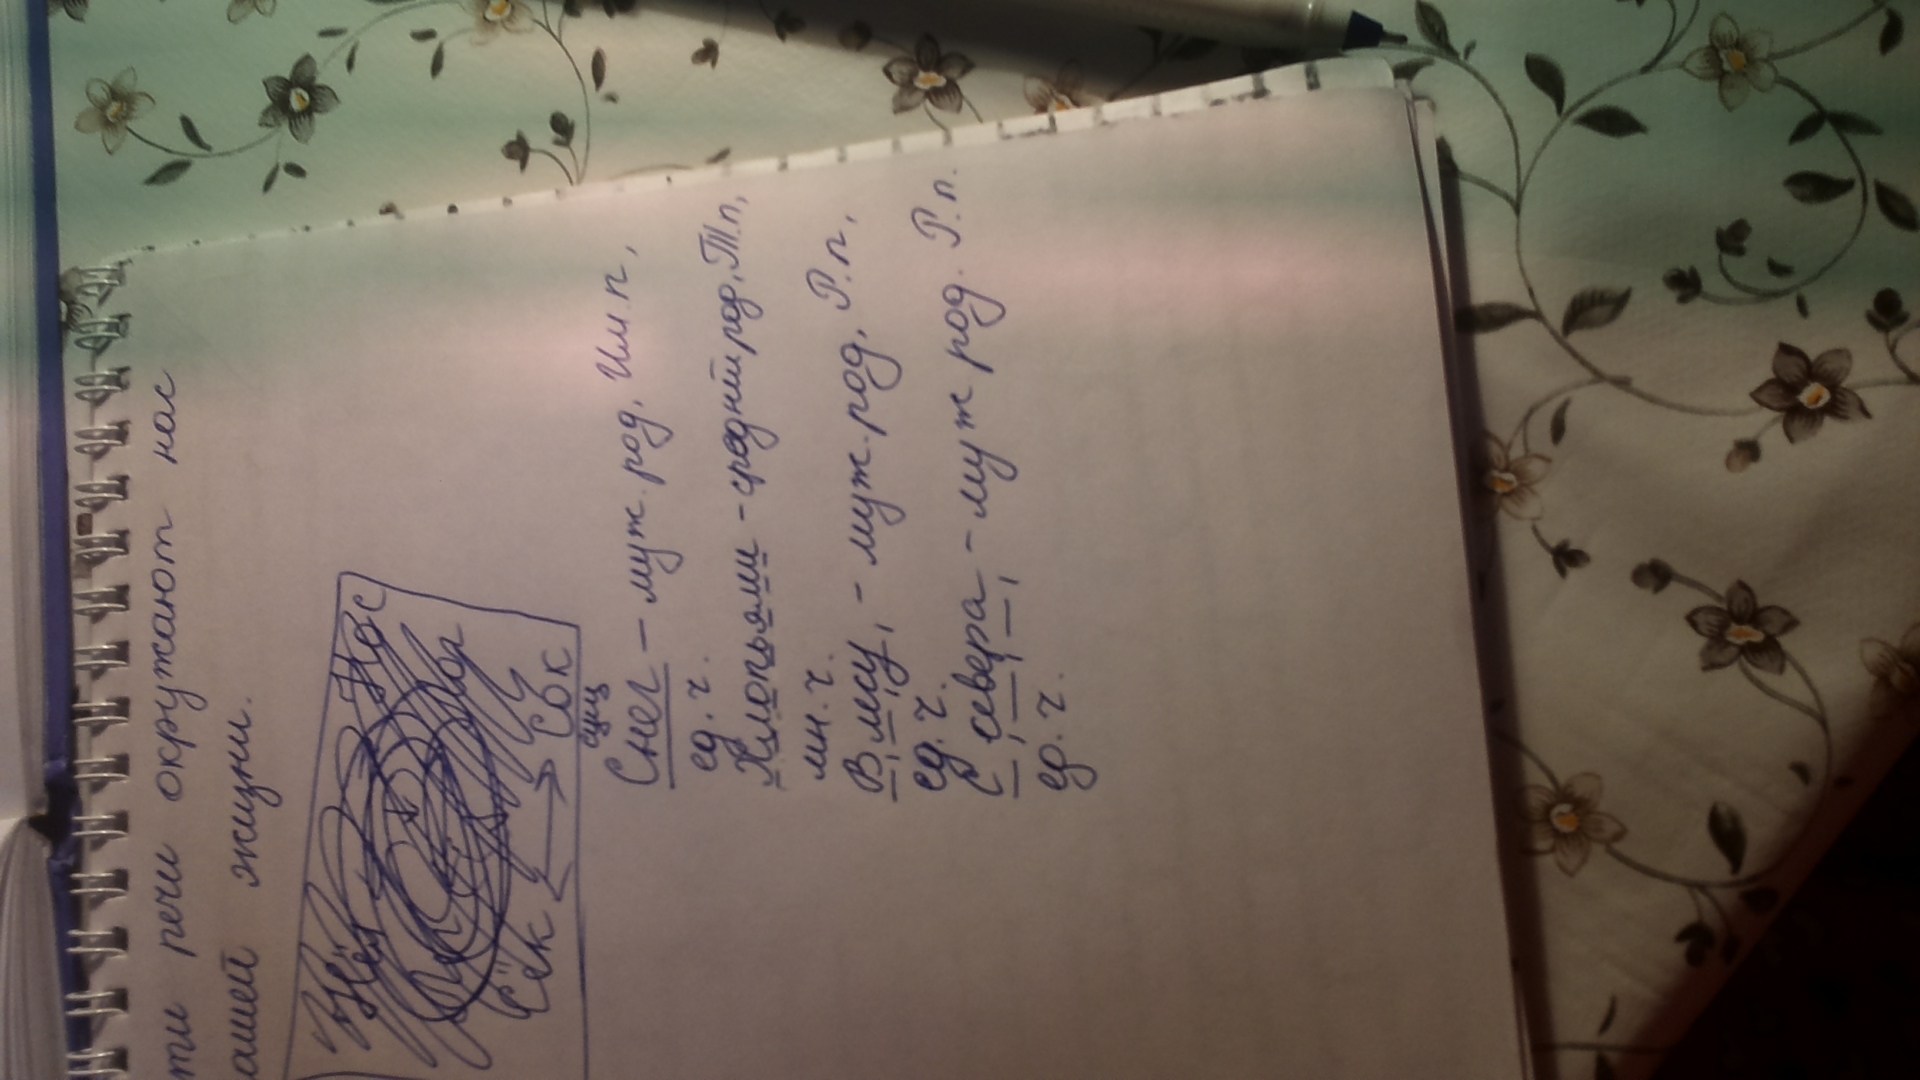 ти речи окружают нас
ашей жизни.
Нос
Сёк сок
Снег – муж. род, Им.п,
ед.ч.
Хлопьями – средний род, Т.п,
мн.ч.
В лесу, – муж. род, Р.п,
ед.ч.
С севера – муж род. Р.п.
ед.ч.